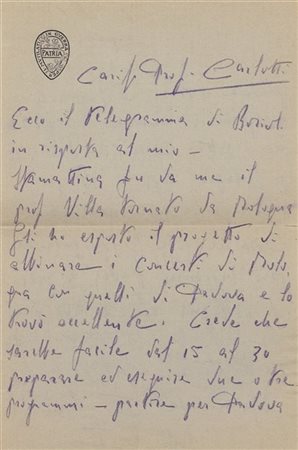 PATRIA
Carif. Prof. Carlotti
Ecco il telegramma di Boriol.
in risposta al mio –
Stamattina fu da me il
prof Villa tornato da Bologna
Gli ho esposto il progetto di
abbinare i Concerti di Bolo,
gna con quelli di Padova e lo
trovò eccellente. Crede che
sarebbe facile dal 15 al 30
preparare ed eseguire due o tre
programmi – partire per Padova